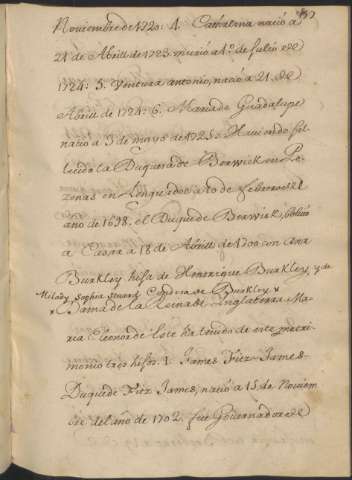 Noviembre de 1720: 4. Cathalina nació a
21 de Abril de 1723. murió a 1º de Julio de
1724: 5. Ventura Antonio, nació a 21. de
Abril de 1724: 6. Maria de Guadalupe
nació a 3 de mayo de 1725: Haviendo fal-
lecido la Duquesa de Berwick en Pe-
zenas en Lenguedoc a 10 de febrero del
ano de 1698. el Duque de Berwick, bolvio
a Casar a 18 de Abril de 1700 con Ana
Burkley hija de Henrrique Burkley, y de
Milady Sophia Stuard, Condesa de Burkley x
x Dama de la Reina de Inglaterra Ma-
ria Leonor de Este ha tenido de este matri-
monio tres hijos. 1. James Fitz-James-
Duque de Fitz James, nació a 15 de Noviem
bre del año de 1702. fue Governador de